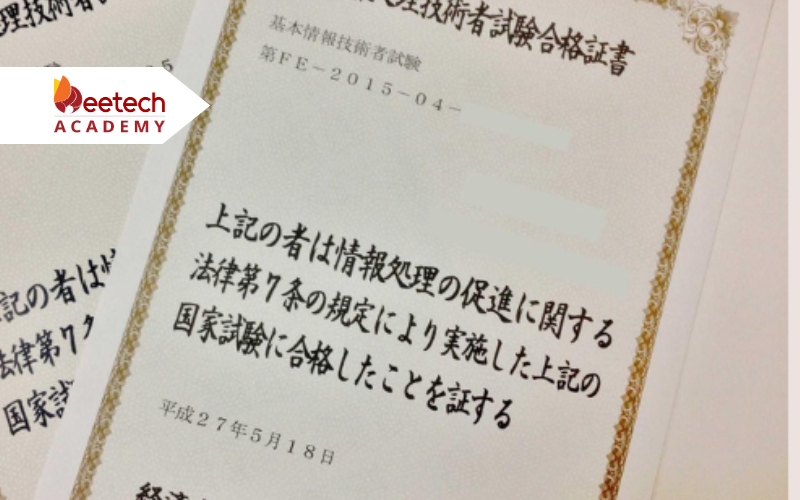 Beetech
ACADEMY
理技術者試験合格証書
基本情報技術者試験
第FE－2015－04－
上記の者は情報処理の促進に関する
法律第7条の規定により実施した上記の
国家試験に合格したことを証する
平成27年5月18日
経済
理技術者
記の者は情
法律第7
国家試